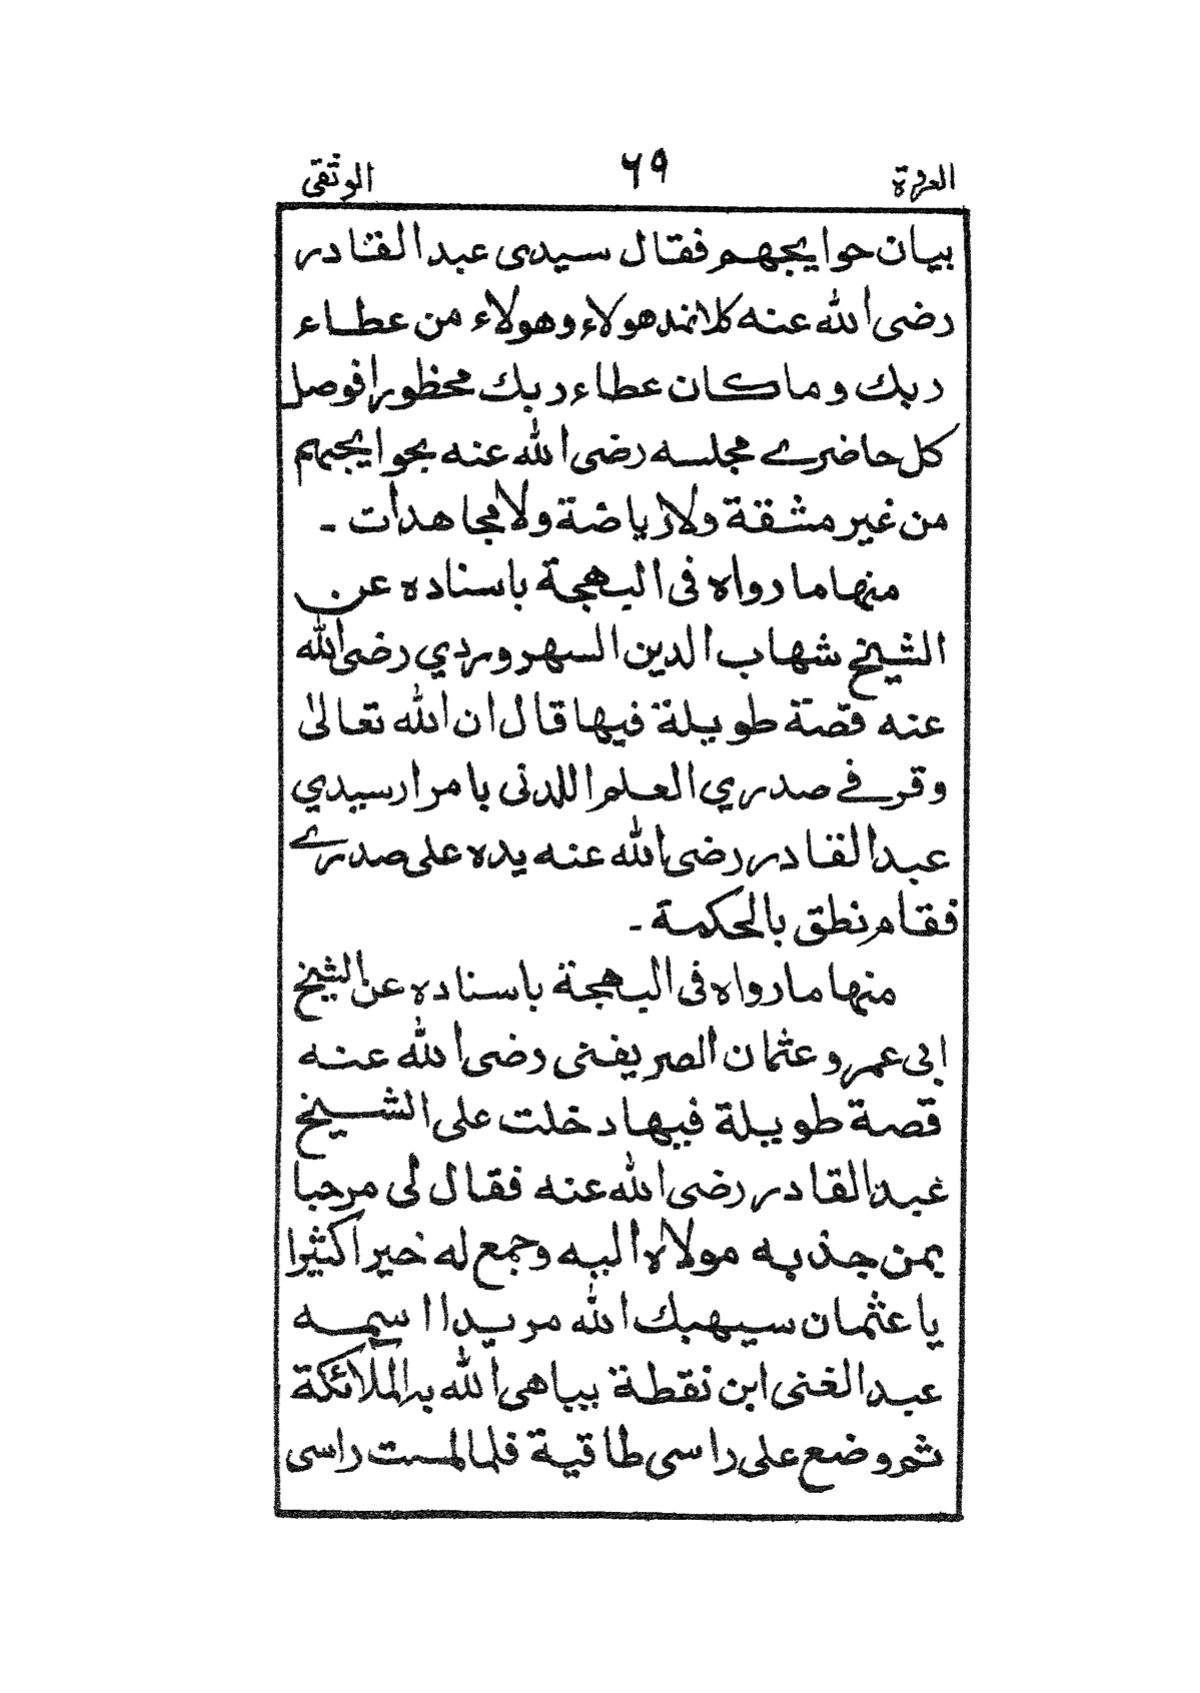 العروة ٦٩ الوثقى
بيان حوايجهم فقال سيدى عبد القادر
رضى الله عنه كلا نمد هولاء وهولاء من عطاء
ربك وما كان عطاء ربك محظورا فوصل
كل حاضرے مجلسه رضى الله عنه بحوايجهم
من غير مشقة ولا رياضة ولا مجاهدات -
منها ما رواه فى البهجة باسناده عن
الشيخ شهاب الدين السهروردي رضى الله
عنه قصة طويلة فيها قال ان الله تعالى
وقر فے صدري العلم اللدنى بامرار سيدي
عبد القادر رضى الله عنه يده على صدرے
فقام نطق بالحكمة -
منها ما رواه فى البهجة باسناده عن الشيخ
ابى عمرو عثمان الصريفنى رضى الله عنه
قصة طويلة فيها دخلت على الشيخ
عبد القادر رضى الله عنه فقال لى مرحبا
بمن جذبه مولاه اليه وجمع له خيرا كثيرا
يا عثمان سيهبك الله مريدا اسمه
عبد الغنى ابن نقطة يباهى الله به الملائكة
ثم وضع على راسى طاقية فلما لمست راسى